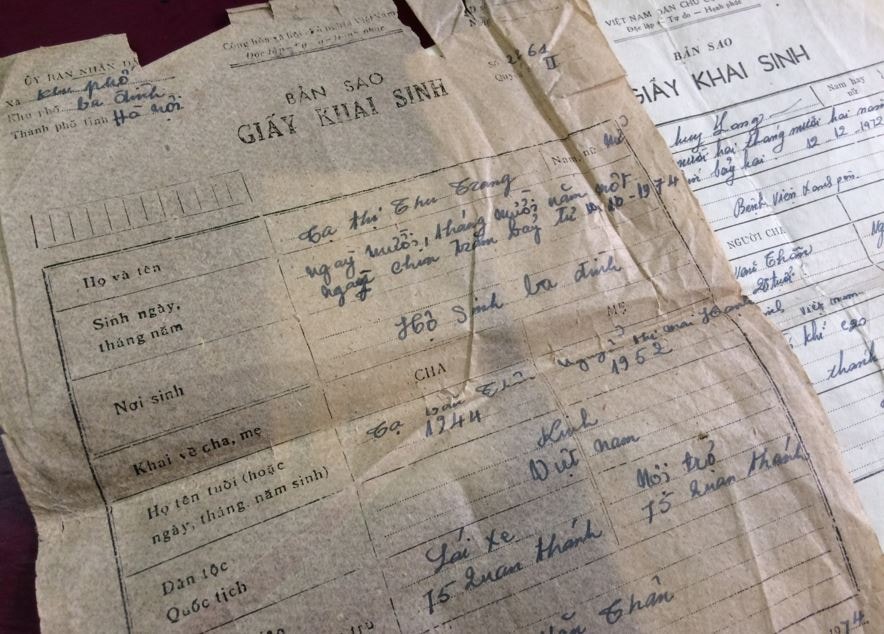 ỦY BAN NHÂN D
Xã Khu phố
Khu phố ba đình
Thành phố Tỉnh Hà nội
Cộng hòa xã hội chủ nghĩa Việt Nam
Độc lập
BẢN SAO
GIẤY KHAI SINH
Số
Quyển II
Họ và tên
Tạ thị Thu Trang
Nam, nữ Nữ
Sinh ngày,
tháng năm
ngày mười, tháng mười năm một
ngàn chín trăm bảy tư 10-10-1974
Nơi sinh
Hộ Sinh ba đình
Khai về cha, mẹ
CHA
MẸ
Họ tên tuổi (hoặc
ngày, tháng, năm sinh)
Tạ văn Thân
1944
1952
Dân tộc
Kinh
Quốc tịch
Việt nam
Lái xe
Nội trợ
75 Quan Thánh
75 Quan Thánh
Thân
VIỆT NAM DÂN CHỦ C
Độc lập - Tự do - Hạnh phúc
BẢN SAO
GIẤY KHAI SINH
Nam hay
nữ
huy Long
mười hai tháng mười hai năm
bảy hai 12-12-1972
Bệnh viện
NGƯỜI CHA
Thân
28 tuổi
khí cao
thành